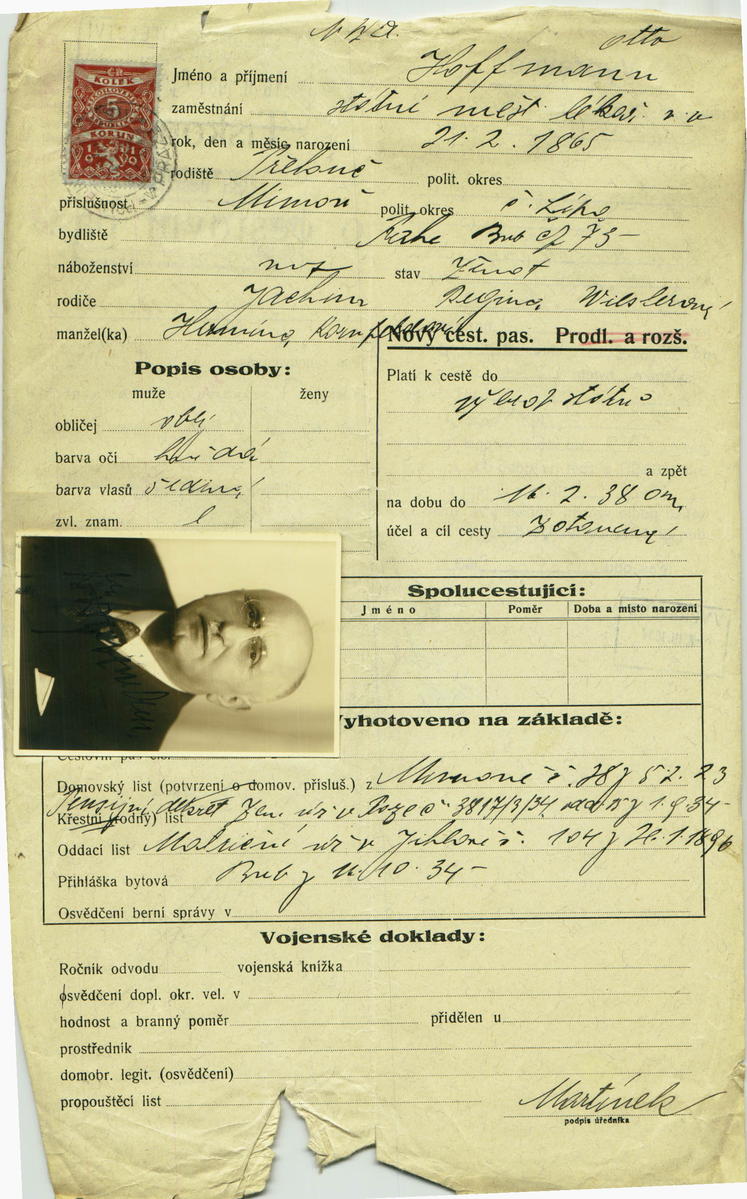 Otto
Jméno a příjmení Hoffmann
ČR
KOLEK
5
KORUN
1919
zaměstnání státní měst. lékař v. v.
rok, den a měsíc narození 21. 2. 1865
rodiště polit. okres
příslušnost Mimoň polit. okres Č. Lípa
bydliště Praha Bub čp 73-
náboženství stav ženat
rodiče Jachim Regina
manžel(ka) Hermína
Nový cest. pas. Prodl. a rozš.
Popis osoby:
muže ženy
obličej oblý
barva očí hnědá
barva vlasů šedivá
zvl. znam.
Platí k cestě do
a zpět
na dobu do 16. 2. 38
účel a cíl cesty Zotavení
Spolucestující:
Jméno Poměr Doba a místo narození
Vyhotoveno na základě:
Cestovní pas čís.
Domovský list (potvrzení o domov. přísluš.) z Mimoně č. 28 z 5. 2. 23
Pensijní dekret Zem. úř. v Praze č 3817/3/34 z 1. 9. 34-
Křestní (rodný) list
Oddací list Matriční úř. v Jihlavě č. 104 z 1896
Přihláška bytová Bub z 11. 10. 34-
Osvědčení berní správy v
Vojenské doklady:
Ročník odvodu vojenská knížka
osvědčení dopl. okr. vel. v
hodnost a branný poměr přidělen u
prostředník
domobr. legit. (osvědčení)
propouštěcí list
Martínek
podpis úředníka